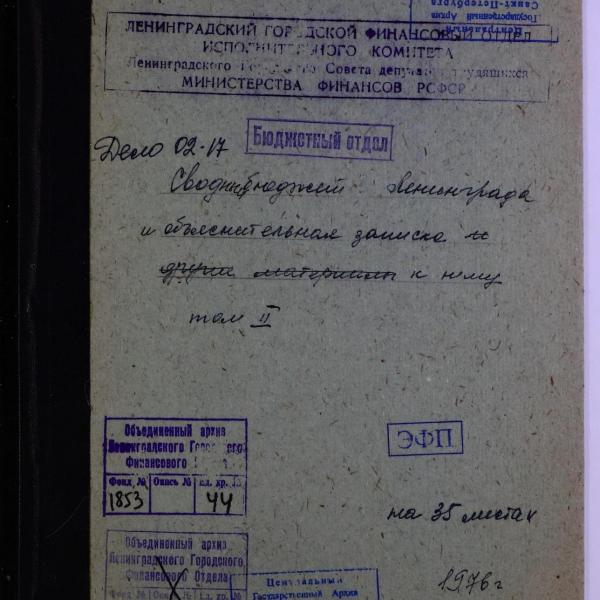 Центральный
Государственный Архив
Санкт-Петербурга
ЛЕНИНГРАДСКИЙ ГОРОДСКОЙ ФИНАНСОВЫЙ ОТДЕЛ
ИСПОЛНИТЕЛЬНОГО КОМИТЕТА
Ленинградского Городского Совета депутатов трудящихся
МИНИСТЕРСТВА ФИНАНСОВ РСФСР
Бюджетный отдел
Дело 02-17
Сводный бюджет Ленинграда
и объяснительная записка и
другие материалы к нему
том II
Объединенный архив
Ленинградского Городского
Финансового
Фонд № Опись № ед. хр. №
1853 44
ЭФП
на 35 листах
Объединенный архив
Ленинградского Городского
Финансового Отдела
Фонд №
Центральный
Государственный Архив
1976 г